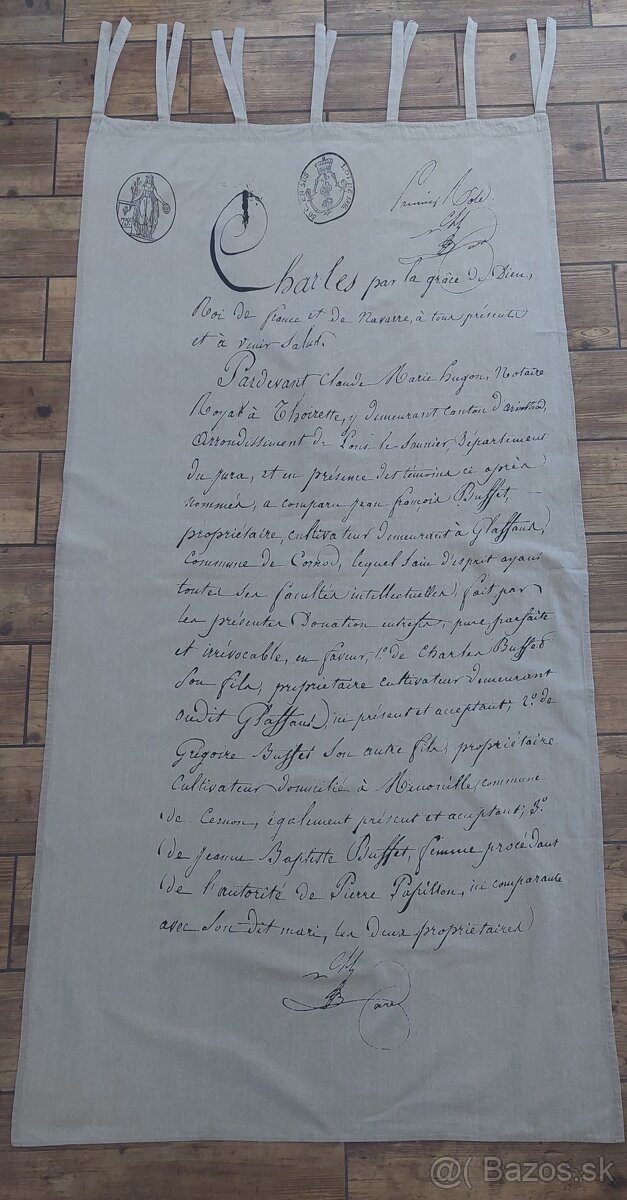 Premier Role.
Charles par la grâce de Dieu,
Roi de france et de Navarre, à tous présents
et à venir Salut.
Pardevant Claude Marie hugon, Notaire
Royal à Thoirette, y demeurant canton d'arinthod,
Arrondissement de Lons le Saunier Département
du jura, et en présence des témoins ci après
nommés, a comparu jean françois Buffet,
propriétaire, cultivateur demeurant à Glaffans,
Commune de Cornod, lequel sain d'esprit ayant
toutes ses facultés intellectuelles, fait par
les présentes Donation entrefs, pure, parfaite
et irrévocable, en faveur, 1.º de Charles Buffet
Son fils, propriétaire cultivateur demeurant
audit Glaffans, ici présent et acceptant; 2.º de
Grégoire Buffet Son autre fils, propriétaire
Cultivateur domicilié à Menouille, commune
de Cernon, également présent et acceptant; 3.º
de Jeanne Baptiste Buffet, femme procédant
de l'autorité de Pierre Papillon, ici comparante
avec Son dit mari, les deux propriétaires
@( Bazos.sk